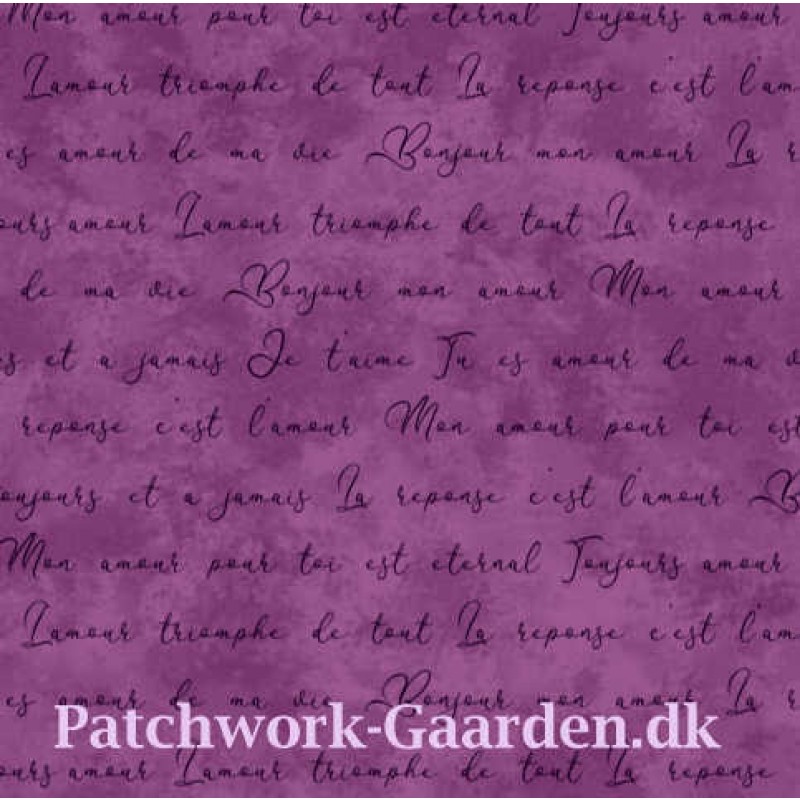 Mon amour pour toi est eternal Toujours amour
L'amour triomphe de tout La reponse c'est l'am
es amour de ma vie Bonjour mon amour La r
ours amour L'amour triomphe de tout La reponse
de ma vie Bonjour mon amour Mon amour
s et a jamais Je t'aime Tu es amour de ma v
reponse c'est l'amour Mon amour pour toi est
oujours et a jamais La reponse c'est l'amour B
Mon amour pour toi est eternal Toujours amour
L'amour triomphe de tout La reponse c'est l'am
es amour de ma vie Bonjour mon amour La r
Patchwork-Gaarden.dk
ours amour L'amour triomphe de tout La reponse